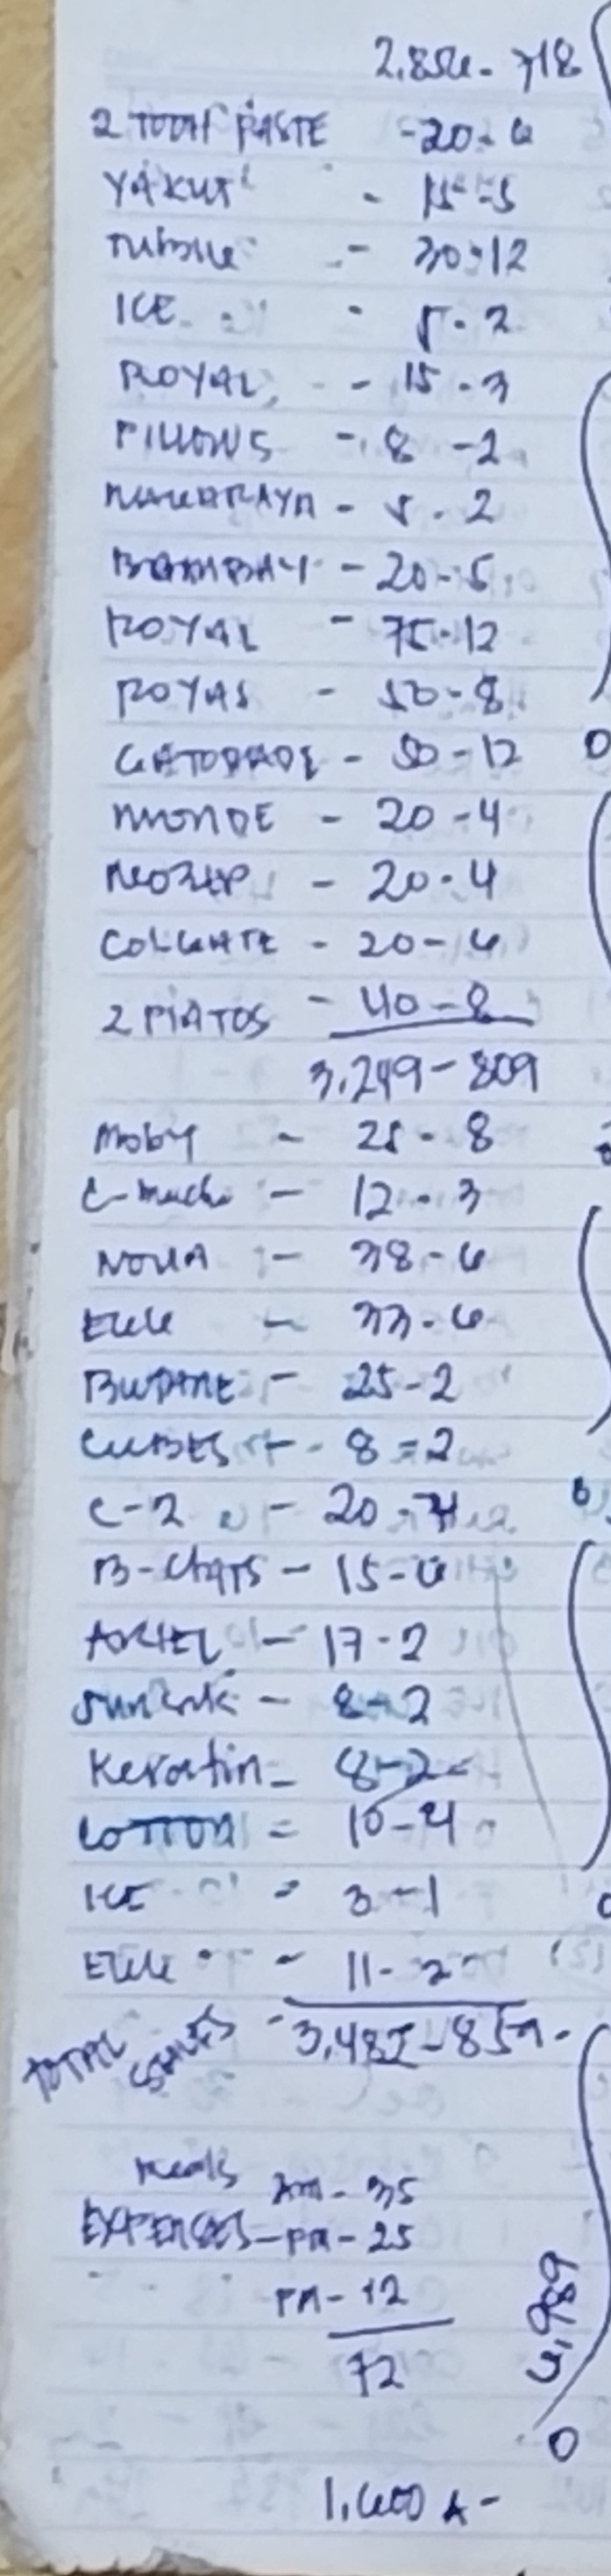 2.856 - 718
2 TOOTH PASTE - 20 - 6
YAKULT - 15 - 5
- 30 - 12
ICE - 5 - 2
ROYAL - 15 - 3
PILLOWS - 8 - 2
- 5 - 2
BOMBAY - 20 - 5
ROYAL - 75 - 12
ROYAL - 50 - 8
GATORADE - 50 - 12
MONDE - 20 - 4
NEOZEP - 20 - 4
COLGATE - 20 - 6
2 PIATOS - 40 - 8
3,249 - 809
Moby - 25 - 8
- 12 - 3
NOVA - 38 - 6
- 33 - 6
BUTANE - 25 - 2
CUBES - 8 = 2
C-2 - 20 -
B-CHAPS - 15 - 6
ARIEL - 17 - 2
Sunsilk - 8 - 2
Keratin - 8 - 2
COTTON = 10 - 4
ICE - 3 - 1
- 11 - 2
TOTAL SALES - 3,482 - 859 -
Meals
EXPENSES
AM - 35
PM - 25
PM - 12
72
6,989
1,600